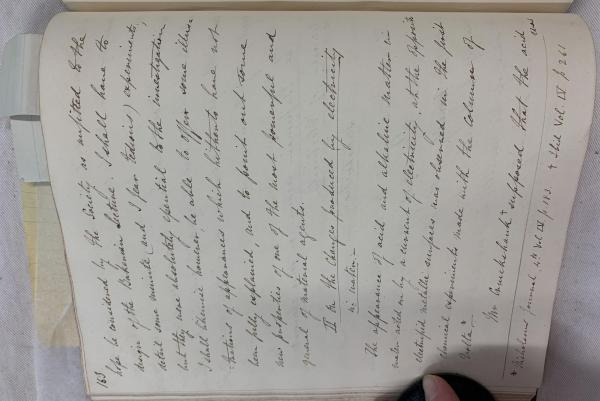 163
hope be considered by the Society as unfitted to the
design of the Bakerian Lecture. I shall have to
detail some minute (and I fear tedious) experiments;
but they were absolutely essential to the investigation
I shall likewise however, be able to offer some illus
trations of appearances which hitherto have not
been fully explained, and to point out some
new properties of one of the most powerful and
general of material agents.
II On the Changes produced by electricity
in water.—
The appearance of acid and alkaline matter in
water acted on by a current of electricity, at the opposite
electrified metallic surfaces, was observed in the first
chemical experiments made with the column of
Volta *
Mr. Cruickshank + supposed that the acid
was
* Nicholsons Journal 4to Vol IV p. 183. + Ibid Vol. IV p 261